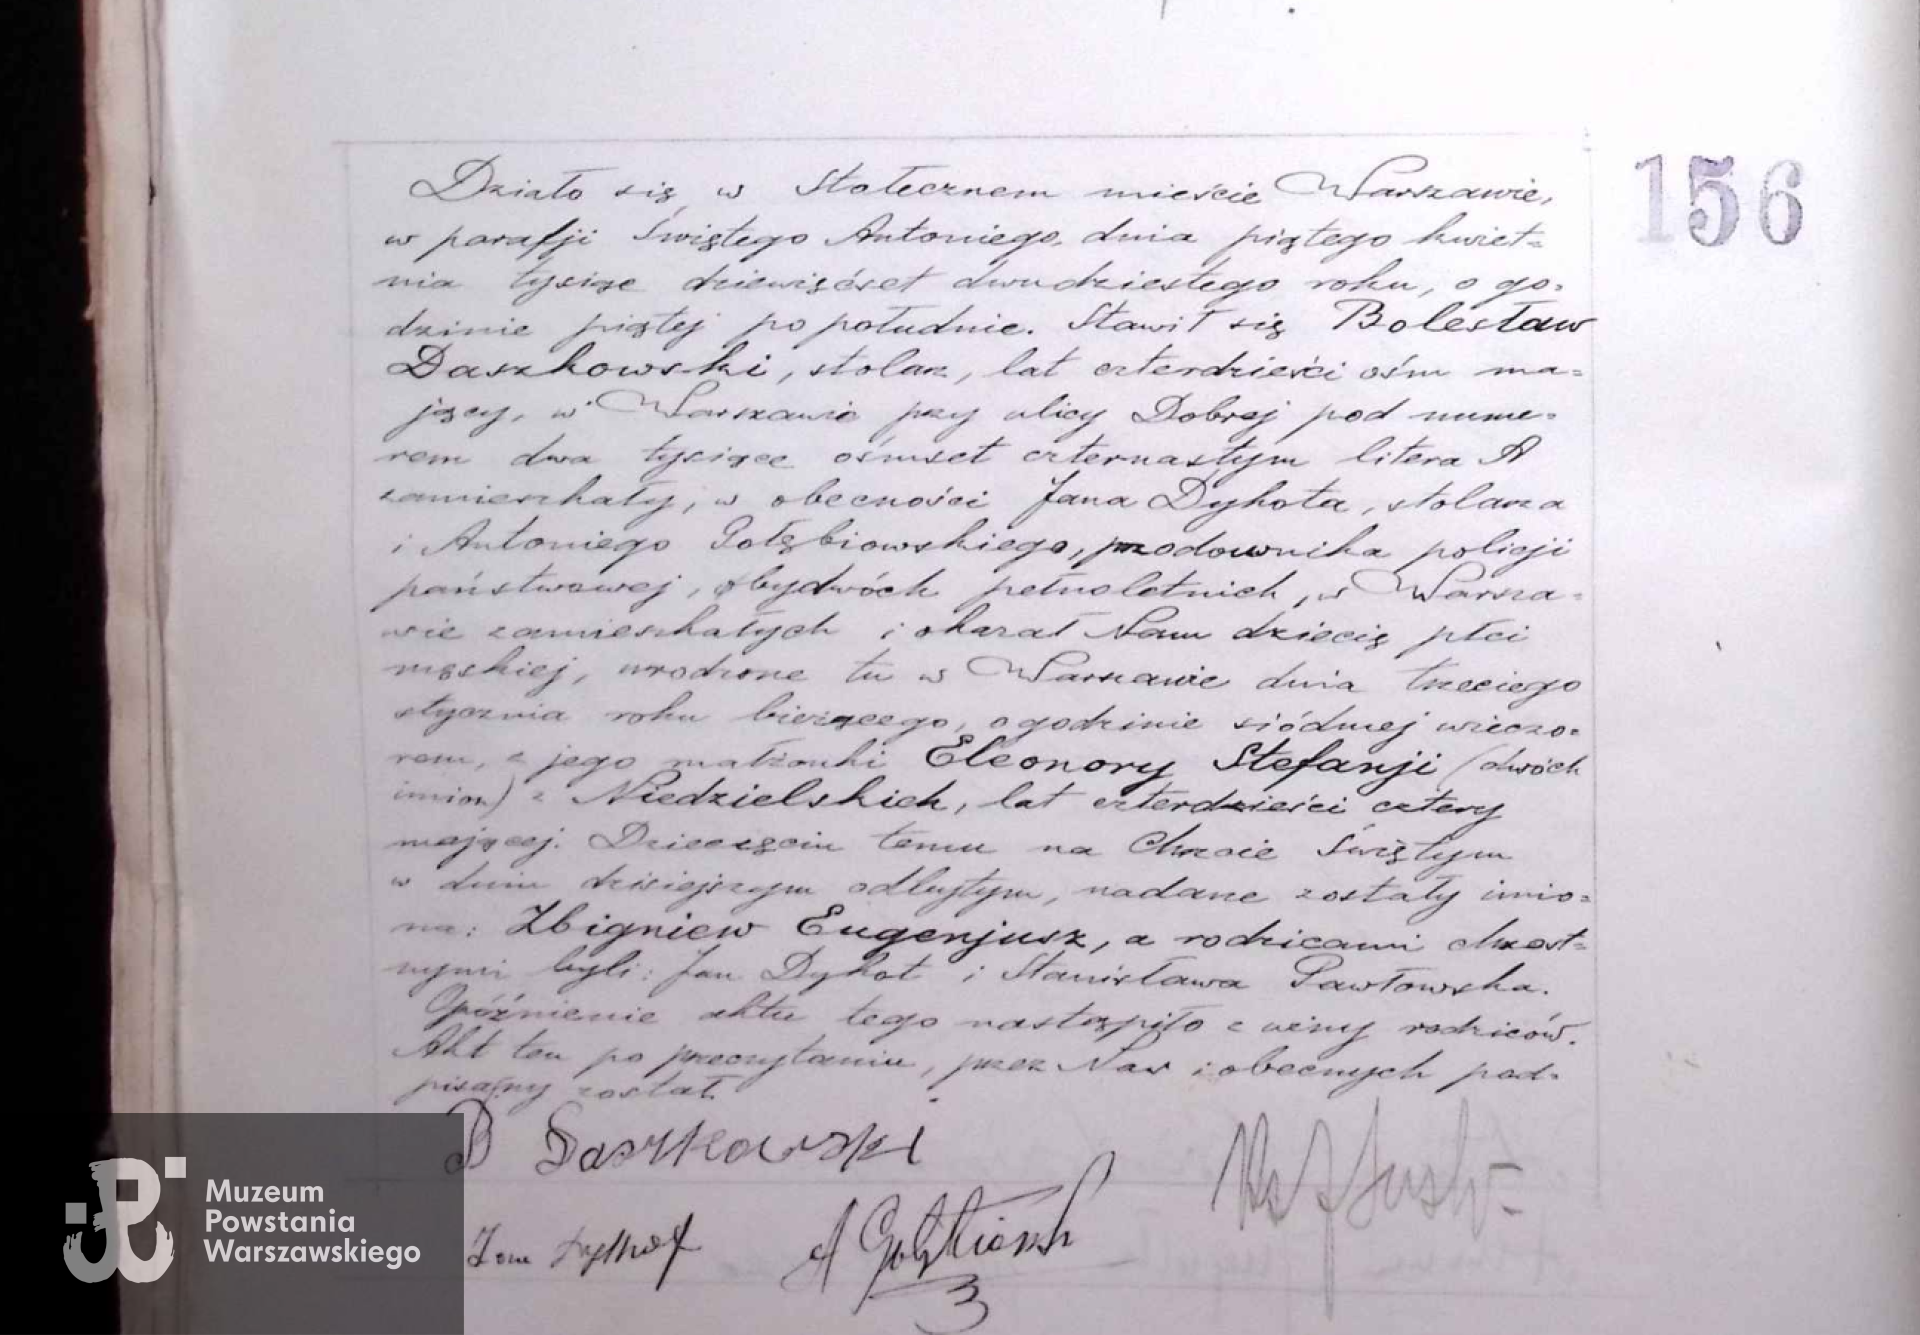 156
Działo się w Stołecznem mieście Warszawie,
w parafji Świętego Antoniego, dnia piątego kwiet=
nia tysiąc dziewięćset dwudziestego roku, o go=
dzinie piątej po południe. Stawił się Bolesław
Daszkowski, stolarz, lat czterdzieści ośm ma=
jący, w Warszawie przy ulicy Dobrej pod nume=
rem dwa tysiące ośmset czternastym litera A
zamieszkały, w obecności Jana Dykota, stolarza
i Antoniego Gołębiowskiego, przodownika policji
państwowej, obydwóch pełnoletnich, w Warsza=
wie zamieszkałych i okazał Nam dziecię płci
męskiej, urodzone tu w Warszawie dnia trzeciego
stycznia roku bieżącego, o godzinie siódmej wieczo=
rem, z jego małżonki Eleonory Stefanji (dwóch
imion) z Niedzielskich, lat czterdzieści cztery
mającej. Dziecięciu temu na Chrzcie Świętym
w dniu dzisiejszym odbytym, nadane zostały imio=
na: Zbigniew Eugenjusz, a rodzicami chrzest=
nymi byli: Jan Dykot i Stanisława Pawłowska.
Opóźnienie aktu tego nastąpiło z winy rodziców.
Akt ten po przeczytaniu, przez Nas i obecnych pod=
pisany został.
B Daszkowski
Jan Dykot A Gołębiowski
Muzeum
Powstania
Warszawskiego